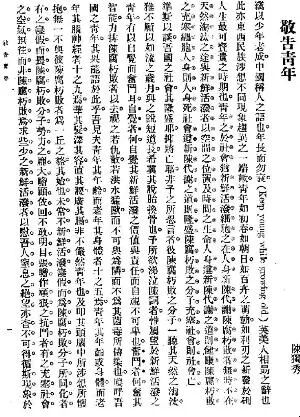 敬告青年
陳獨秀
竊以少年老成中國稱人之語也年長而勿衰(Keep young while growing old)英美人相勗之辭也
此亦東西民族涉想不同現象趨異之一端歟青年如初春如朝日如百卉之萌動如利刃之新發於硎
人生最可寶貴之時期也青年之於社會猶新鮮活潑細胞之在人身新陳代謝陳腐朽敗者無時不在
天然淘汰之途與新鮮活潑者以空間之位置及時間之生命人身遵新陳代謝之道則健康陳腐朽敗
之細胞充塞人身則人身死社會遵新陳代謝之道則隆盛陳腐朽敗之分子充塞社會則社會亡
準斯以談吾國之社會其隆盛耶抑將亡耶非予之所忍言者彼陳腐朽敗之分子一聽其天然之淘汰
雅不願以如流之歲月與之說短道長希冀其脫胎換骨也予所欲涕泣陳詞者惟屬望於新鮮活潑之
青年有以自覺而奮鬥耳自覺者何自覺其新鮮活潑之價值與責任而自視不可卑也奮鬥者何奮其
智能力排陳腐朽敗者以去視之若仇敵若洪水猛獸而不可與爲鄰而不爲其菌毒所傳染也嗚呼吾
國之青年其果能語於此乎吾見夫青年其年齡而老年其身體者十之五焉青年其年齡或身體而老
年其腦神經者十之九焉華其髮澤其容直其腰廣其膈非不儼然青年也及叩其頭腦中所涉想所懷
抱無一不與彼陳腐朽敗者爲一丘之貉其始也未嘗不新鮮活潑寖假而爲陳腐朽敗分子所同化者
有之寖假而畏陳腐朽敗分子勢力之龐大瞻顧依回不敢明目張膽作頑狠之抗鬥者有之充塞社會
之空氣無往而非陳腐朽敗焉求些少之新鮮活潑者以慰吾人窒息之絕望亦杳不可得循斯現象於
一